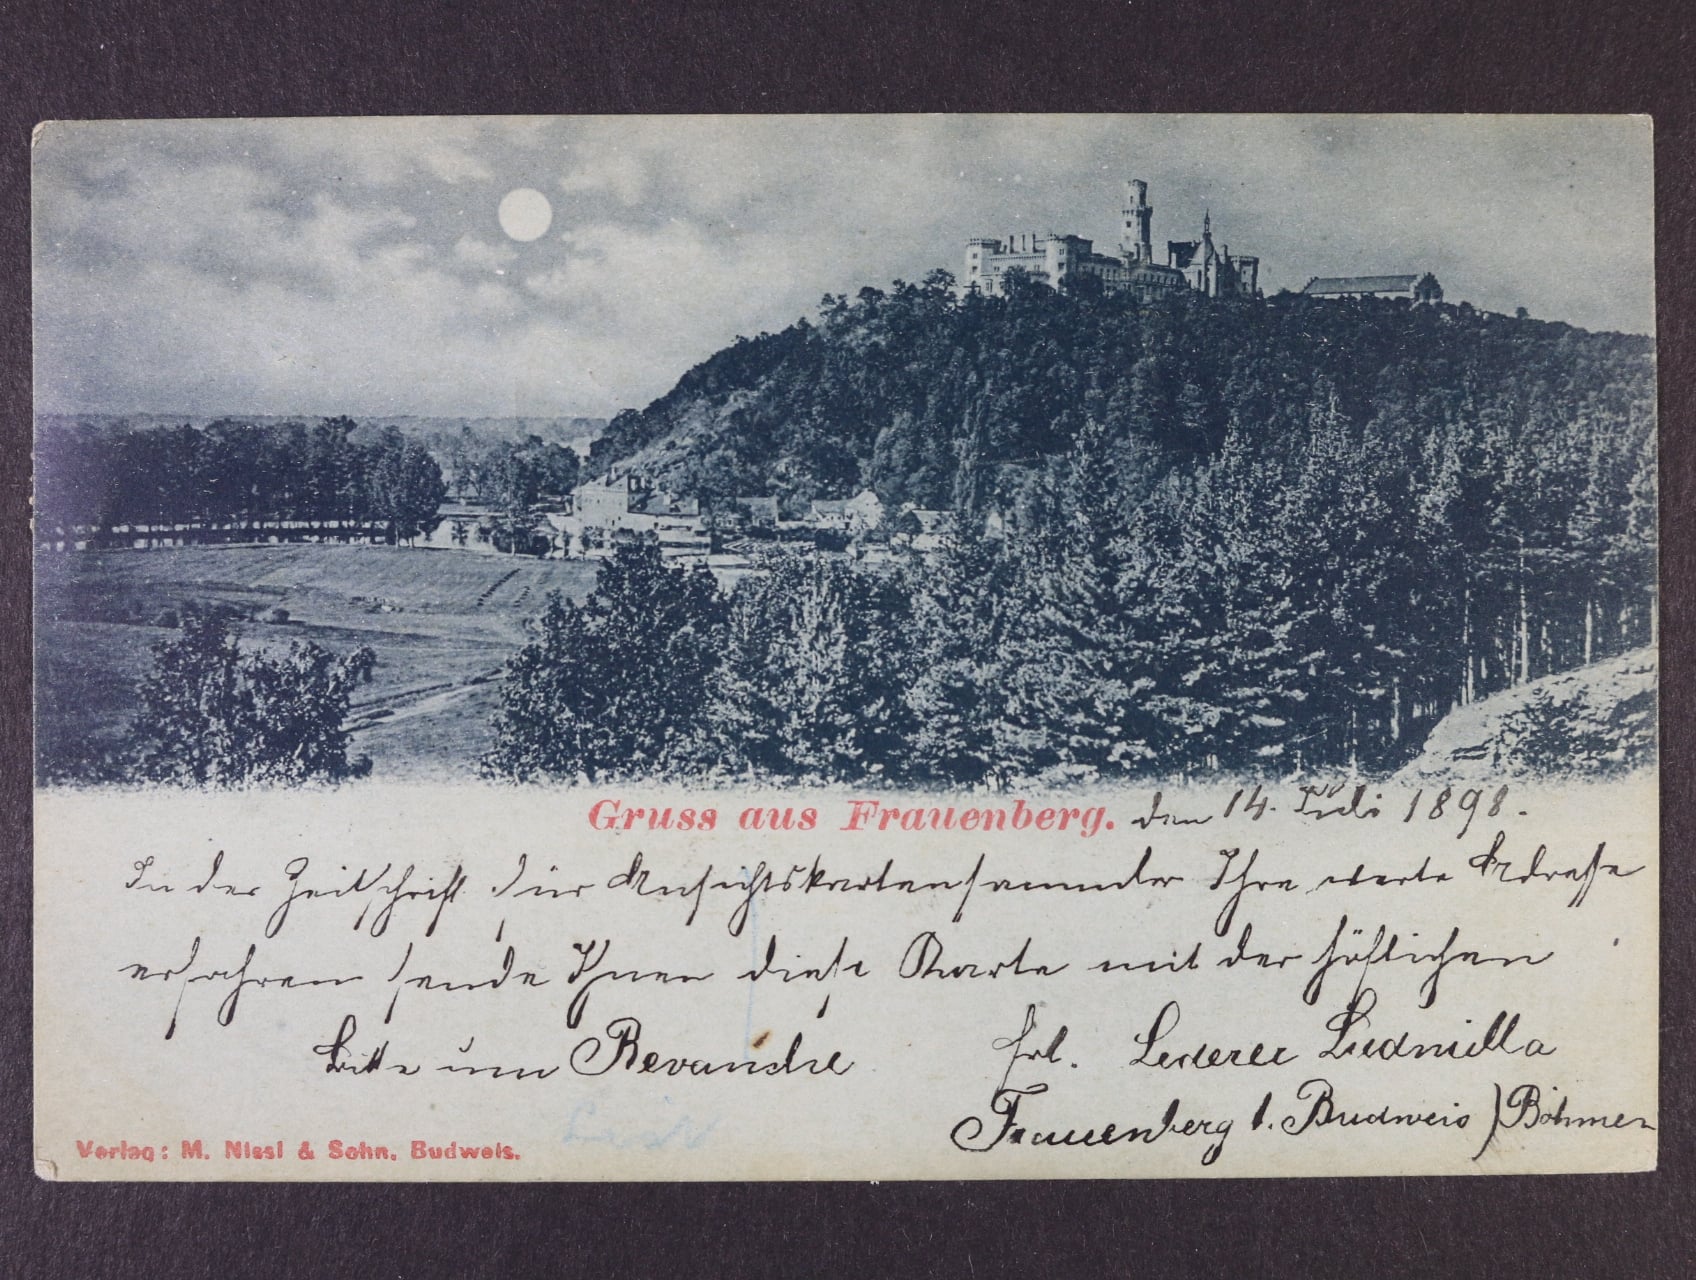 Gruss aus Frauenberg. den 14. Juli 1898.
In der Zeitschrift für Ansichtskartensammler Ihre werte Adresse
erfahren sende Ihnen diese Karte mit der höflichen
Bitte um Revanche
Frl. Lederer Ludmilla
Frauenberg b. Budweis Böhmen
Verlag: M. Nissl & Sohn, Budweis.